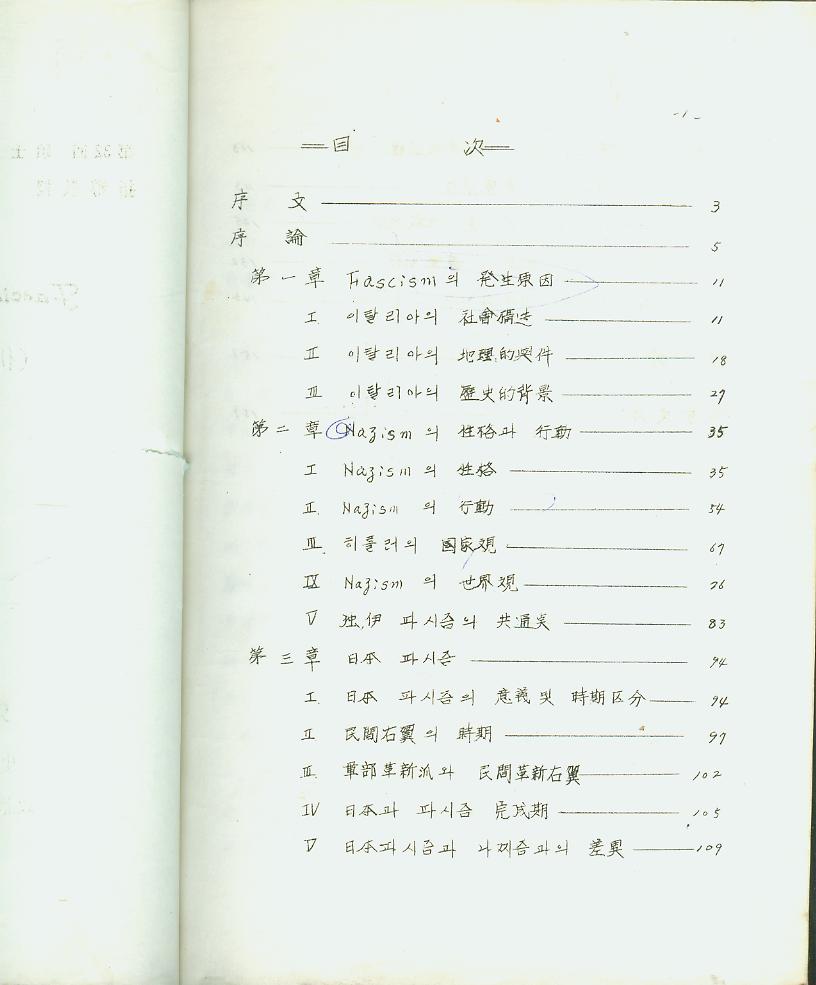 -1-
目 次
序 文 3
序 論 5
第一章 Fascism의 発生原因 11
I 이탈리아의 社會構造 11
II 이탈리아의 地理的 18
III 이탈리아의 歷史的背景 27
第二章 Nazism의 性格과 行動 35
I Nazism의 性格 35
II Nazism의 行動 54
III 히틀러의 國家観 67
IX Nazism의 世界観 76
V 独,伊 파시즘의 共通点 83
第三章 日本 파시즘 94
I 日本 파시즘의 意義 및 時期区分 94
II 民間右翼의 時期 97
III 軍部革新派와 民間革新右翼 102
IV 日本과 파시즘 完成期 105
V 日本파시즘과 나찌즘과의 差異 109